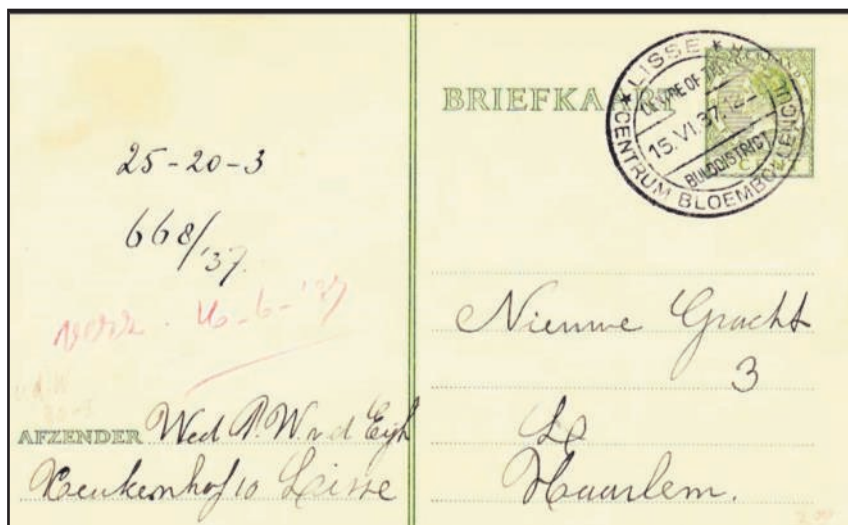 25-20-3
668/'37.
16-6-'37
AFZENDER Wed P. W. v d Eijk
Keukenhof 10 Lisse
BRIEFKAART
★ LISSE ★
CENTRUM BLOEMBOLLENDISTRICT
CENTRE OF THE
15.VI.37.12
BULBDISTRICT
Nieuwe Gracht
3
Haarlem.